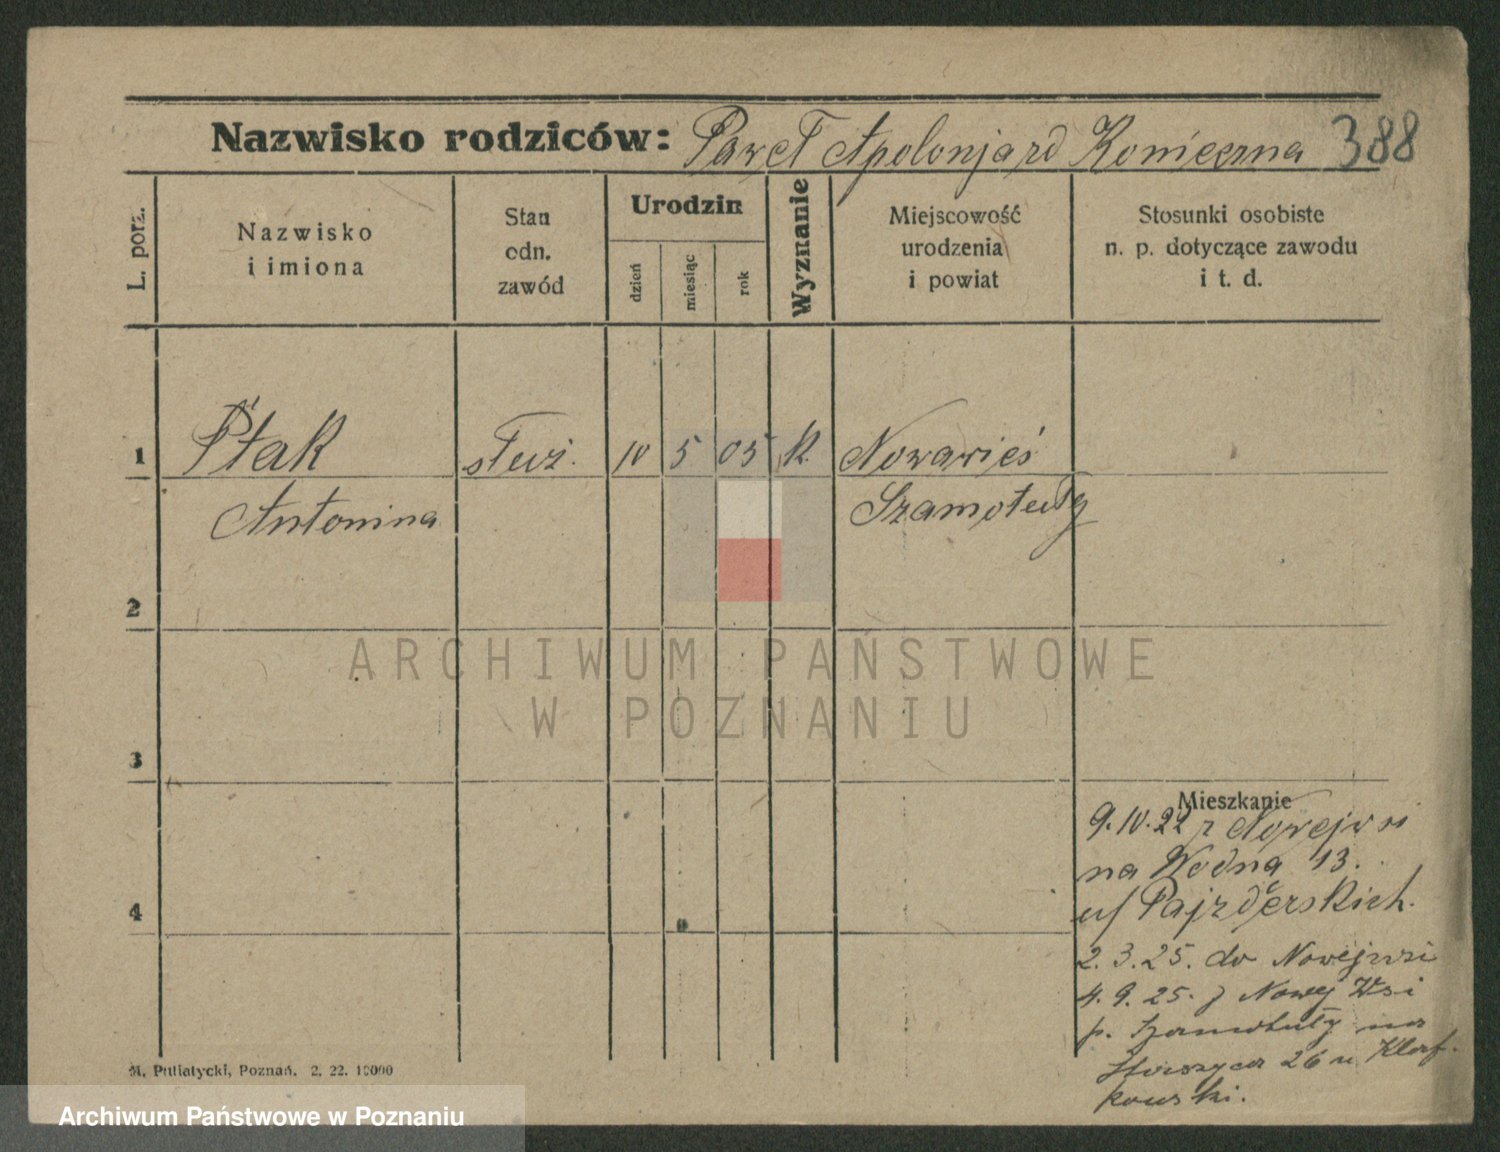 Nazwisko rodziców: Paweł Apolonja zd Konieczna 388
L. porz.
Nazwisko
i imiona
Stan
odn.
zawód
Urodzin
dzień
miesiąc
rok
Wyznanie
Miejscowość
urodzenia
i powiat
Stosunki osobiste
n. p. dotyczące zawodu
i t. d.
1 Ptak służ. 10 5 05 k. Nowawieś
Antonina Szamotuły
2
ARCHIWUM PAŃSTWOWE
W POZNANIU
3
Mieszkanie
9.10.22 z Nowejwsi
na Wodna 13.
u/ Pajzderskich.
4
2.3.25. do Nowejwsi
4.9.25. z Nowej Wsi
p. Szamotuły na
26 u
kowski.
M. Putiatycki, Poznań. 2. 22. 10000
Archiwum Państwowe w Poznaniu